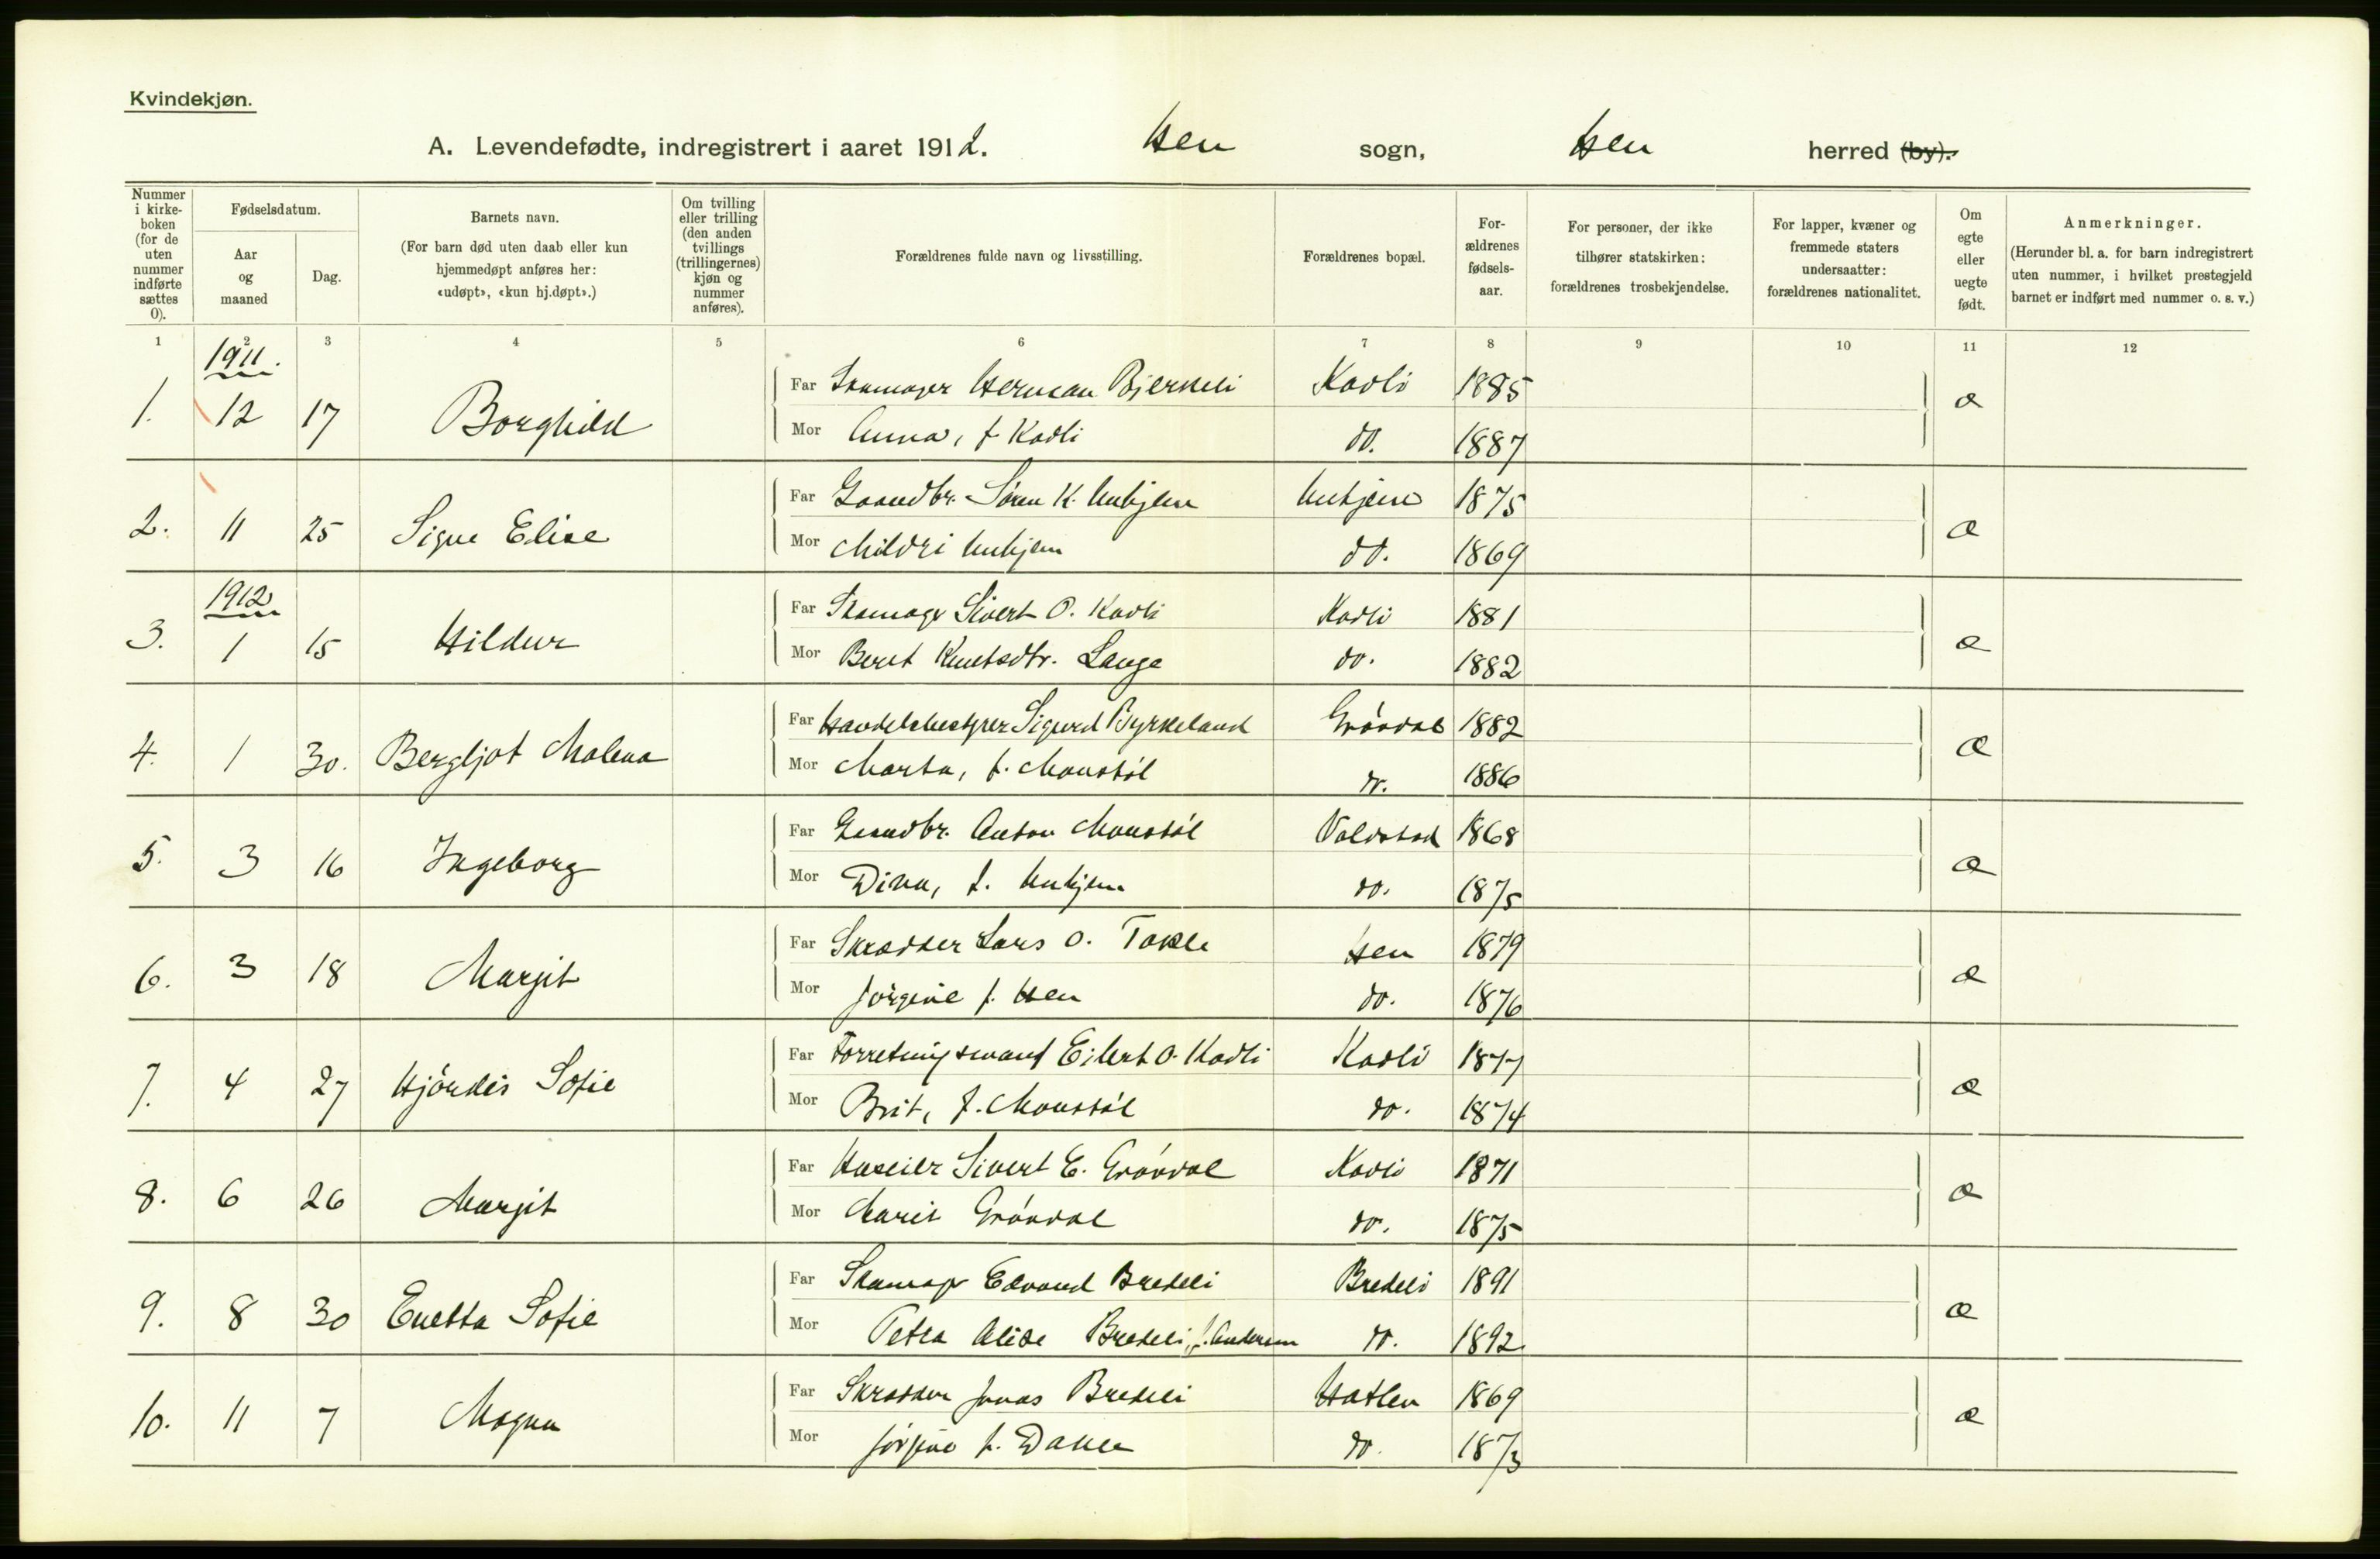 Kvindekjøn.
A. Levendefødte, indregistrert i aaret 1912. Hen sogn, Hen herred (by).
Nummer i kirkeboken (for de uten nummer indførte sættes 0).
Fødselsdatum.
Aar og maaned
Dag.
Barnets navn.
(For barn død uten daab eller kun hjemmedøpt anføres her: «udøpt», «kun hj.døpt».)
Om tvilling eller trilling (den anden tvillings (trillingernes) kjøn og nummer anføres).
Forældrenes fulde navn og livsstilling.
Forældrenes bopæl.
For-ældrenes fødsels-aar.
For personer, der ikke tilhører statskirken: forældrenes trosbekjendelse.
For lapper, kvæner og fremmede staters undersaatter: forældrenes nationalitet.
Om egte eller uegte født.
Anmerkninger.
(Herunder bl. a. for barn indregistrert uten nummer, i hvilket prestegjeld barnet er indført med nummer o. s. v.)
1 2 3 4 5 6 7 8 9 10 11 12
1911.
1. 12 17 Borghild Far Skomager Herman Bjerkeli Kavli 1885 æ
Mor Anna, f. Kavli do. 1887
2. 11 25 Signe Elise Far Gaardbr. Søren K. Unhjem Unhjem 1875 æ
Mor Mildri Unhjem do. 1869
1912
3. 1 15 Hildur Far Skomager Sivert O. Kavli Kavli 1881 æ
Mor Berit Knutsdtr. Lange do. 1882
4. 1 30. Bergljot Malena Far Handelsbestyrer Sigurd Byrkeland Grøvdal 1882 æ
Mor Marta, f. Monsås do. 1886
5. 3 16 Ingeborg Far Gaardbr. Anton Voldstad 1868 æ
Mor Dina, f. Unhjem do. 1875
6. 3 18 Margit Far Skrædder Lars O. Takle Hen 1879 æ
Mor Jørgine f. Hen do. 1876
7. 4 27 Hjördis Sofie Far Forretningsmand Eilert O. Kavli Kavli 1877 æ
Mor Brit, f. do. 1874
8. 6 26 Margit Far Sivert E. Grøvdal Kavli 1871 æ
Mor Marit Grøvdal do. 1875
9. 8 30 Enetta Sofie Far Skomager Edvard Bredeli Bredeli 1891 æ
Mor Petra Alise Bredeli, f. Andersen do. 1892
10. 11 7 Magna Far Skrædder Jonas Bredeli Hatlen 1869 æ
Mor Jørgine f. do. 1873